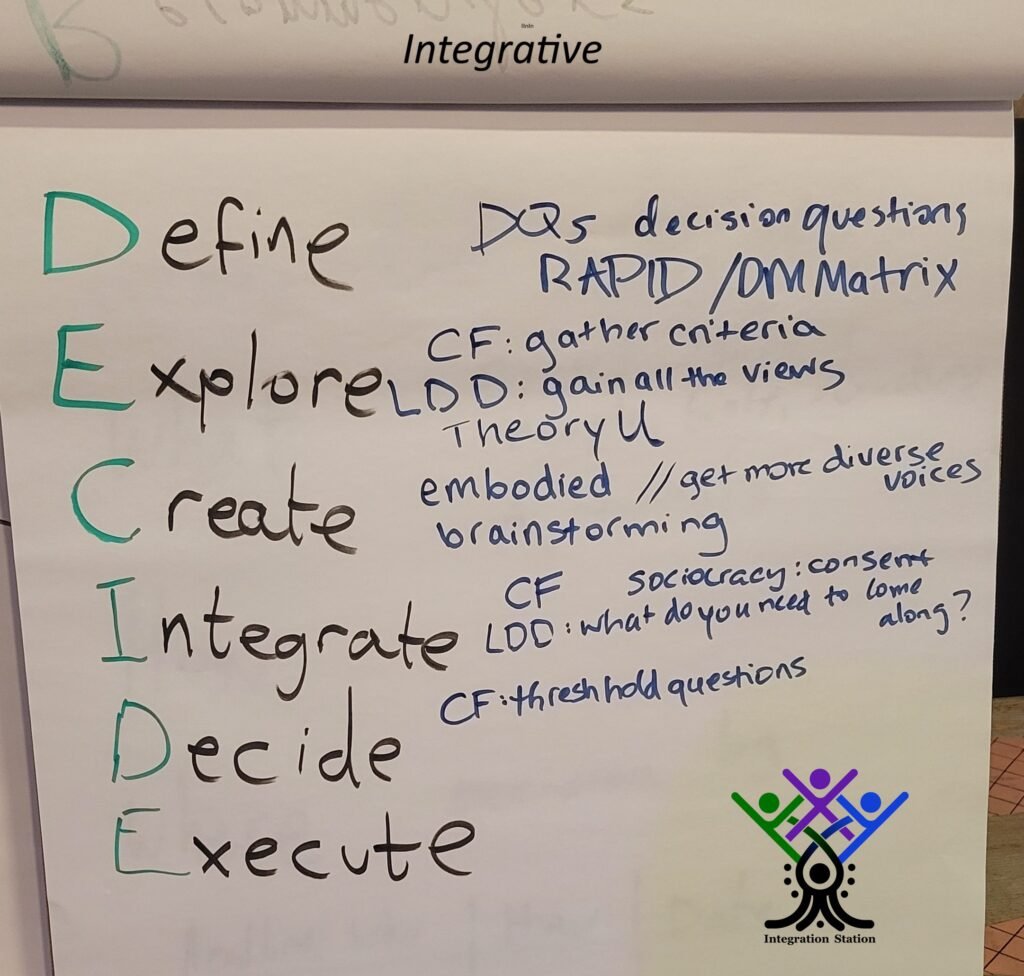 Integrative
Define
DQs decision questions
RAPID / DM Matrix
Explore
CF: gather criteria
LDD: gain all the views
Theory U
Create
embodied // get more diverse voices
brainstorming
Integrate
CF sociocracy: consent
LDD: what do you need to come along?
Decide
CF: threshhold questions
Execute
Integration Station